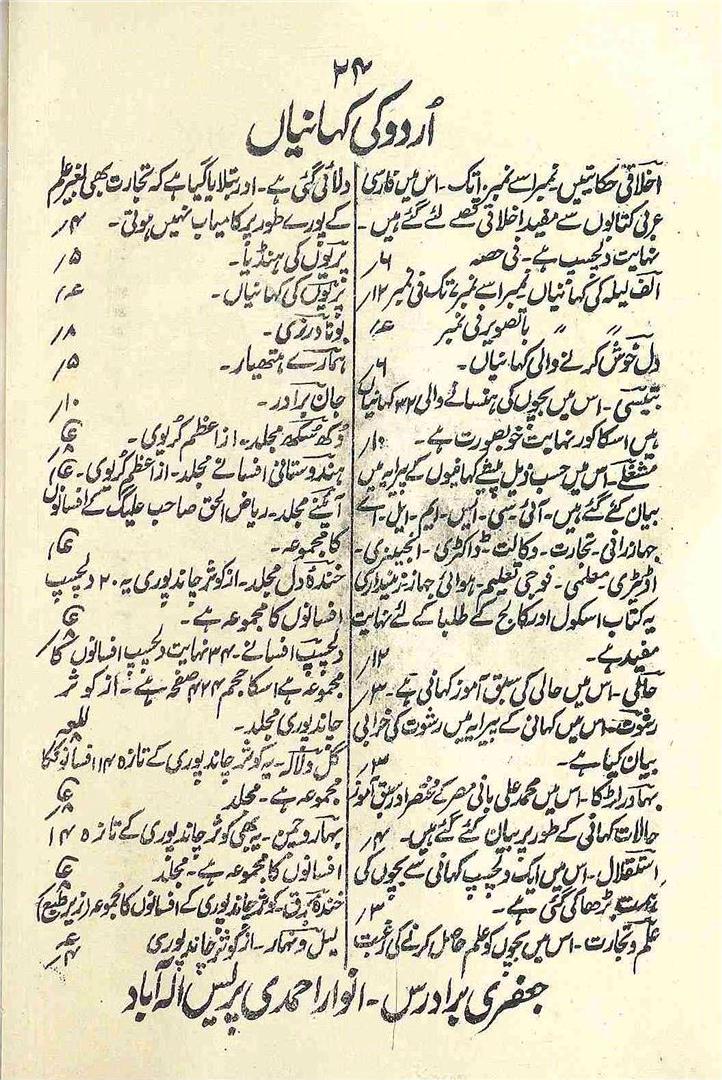 ۲۴
اُردو کی کہانیاں
اخلاقی حکایتیں نمبر ا سے نمبر ۱۰ تک ۔ اس میں فارسی
عربی کتابوں سے مفید اخلاقی قصے لئے گئے ہیں ۔
نہایت دلچسپ ہے ۔ فی حصہ ۶؍
الف لیلہ کی کہانیاں نمبر ا سے نمبر ۷ تک فی نمبر ۱۲؍
〃 〃 باتصویر فی نمبر
دل خوش کرنے والی کہانیاں ۔ ۶؍
بتیسی ۔ اس میں بچوں کی ہنسانے والی ۳۲ کہانیاں
ہیں اسکا کور نہایت خوبصورت ہے ۔ ۱۰؍
مشغلے ۔ اس میں حسب ذیل پیشے کہانیوں کے پیرایہ میں
بیان کئے گئے ہیں ۔ آئی ۔ سی ۔ ایس ۔ ایم ۔ ایل ۔ اے
جہازرانی ۔ تجارت ۔ وکالت ۔ ڈاکٹری ۔ انجینری ۔
اڈیٹری ۔ معلمی ۔ فوجی تعلیم ۔ ہوائی جہاز ۔ زمینداری
یہ کتاب اسکول اور کالج کے طلبا کے لئے نہایت
مفید ہے ۔ ۱۲؍
حالی ۔ اس میں حالی کی سبق آموز کہانی ہے ۔ ۳؍
رشوت ۔ اس میں کہانی کے پیرایہ میں رشوت کی خرابی
بیان کیا ہے ۔ ۳؍
بہادر لڑکا ۔ اس میں محمد علی بانی مصر کے مختصر اور سبق آموز
حالات کہانی کے طور پر بیان کئے گئے ہیں ۔ ۴؍
استقلال ۔ اس میں ایک دلچسپ کہانی سے بچوں کی
ہمت بڑھائی گئی ہے ۔ ۳؍
علم و تجارت ۔ اس میں بچوں کو علم حاصل کرنے کی رغبت
دلائی گئی ہے ۔ اور بتلایا گیا ہے کہ تجارت بھی بغیر علم
کے پورے طور پر کامیاب نہیں ہوتی ۔ ۴؍
پریوں کی ہنڈیا ۔ ۵؍
پریوں کی کہانیاں ۔
بونا درزی ۔ ۸؍
ہمارے ہتھیار ۔ ۵؍
جان برادر ۔ ۱۰؍
دُکھ سُکھ مجلد ۔ از اعظم کریوی ۔
ہندوستانی افسانے مجلد ۔ از اعظم کریوی ۔
آئینے مجلد ۔ ریاض الحق صاحب علیگ کے افسانوں
کا مجموعہ ۔
خندۂ دل مجلد ۔ از کوثر چاندپوری یہ ۲۰ دلچسپ
افسانوں کا مجموعہ ہے ۔
دلچسپ افسانے ۔ ۳۴ نہایت دلچسپ افسانوں کا
مجموعہ ہے اسکا حجم ۴۲۴ صفحہ ہے ۔ از کوثر
چاندپوری مجلد ۔
گل و لالہ ۔ یہ کوثر چاندپوری کے تازہ ۱۴ افسانوں کا
مجموعہ ہے ۔ مجلد
بہار و چمن ۔ یہ بھی کوثر چاندپوری کے تازہ ۱۴
افسانوں کا مجموعہ ہے ۔ مجلد
خندۂ برق ۔ کوثر چاندپوری کے افسانوں کا مجموعہ (زیر طبع)
لیل و نہار ۔ از کوثر چاندپوری
جعفری برادرس ۔ انوار احمدی پریس الہ آباد